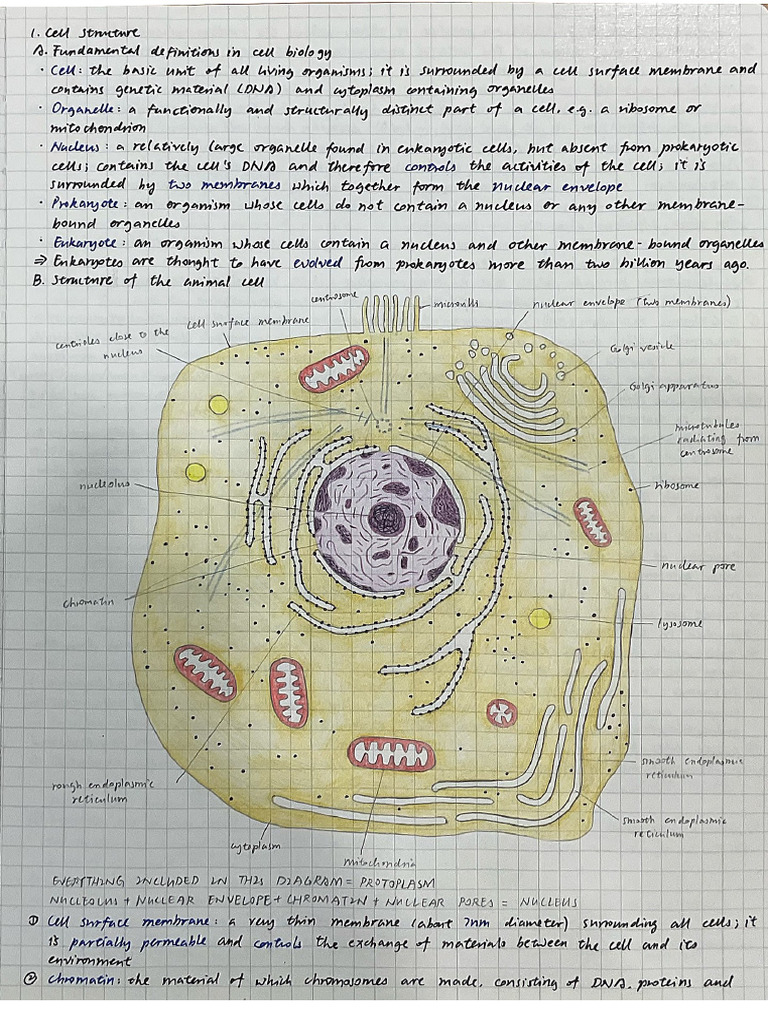 1. Cell structure
A. Fundamental definitions in cell biology
· Cell: the basic unit of all living organisms; it is surrounded by a cell surface membrane and
contains genetic material (DNA) and cytoplasm containing organelles
· Organelle: a functionally and structurally distinct part of a cell, e.g. a ribosome or
mitochondrion
· Nucleus: a relatively large organelle found in eukaryotic cells, but absent from prokaryotic
cells; contains the cell's DNA and therefore controls the activities of the cell; it is
surrounded by two membranes which together form the nuclear envelope
· Prokaryote: an organism whose cells do not contain a nucleus or any other membrane-
bound organelles
· Eukaryote: an organism whose cells contain a nucleus and other membrane-bound organelles
⇒ Eukaryotes are thought to have evolved from prokaryotes more than two billion years ago.
B. Structure of the animal cell
centrosome
microvilli
nuclear envelope (two membranes)
cell surface membrane
centrioles close to the
nucleus
Golgi vesicle
Golgi apparatus
microtubules
radiating from
centrosome
nucleolus
ribosome
nuclear pore
chromatin
lysosome
rough endoplasmic
reticulum
smooth endoplasmic
reticulum
smooth endoplasmic
reticulum
cytoplasm
mitochondria
EVERYTHING INCLUDED IN THIS DIAGRAM = PROTOPLASM
NUCLEOLUS + NUCLEAR ENVELOPE + CHROMATIN + NUCLEAR PORES = NUCLEUS
① Cell surface membrane: a very thin membrane (about 7nm diameter) surrounding all cells; it
is partially permeable and controls the exchange of materials between the cell and its
environment
② Chromatin: the material of which chromosomes are made, consisting of DNA, proteins and